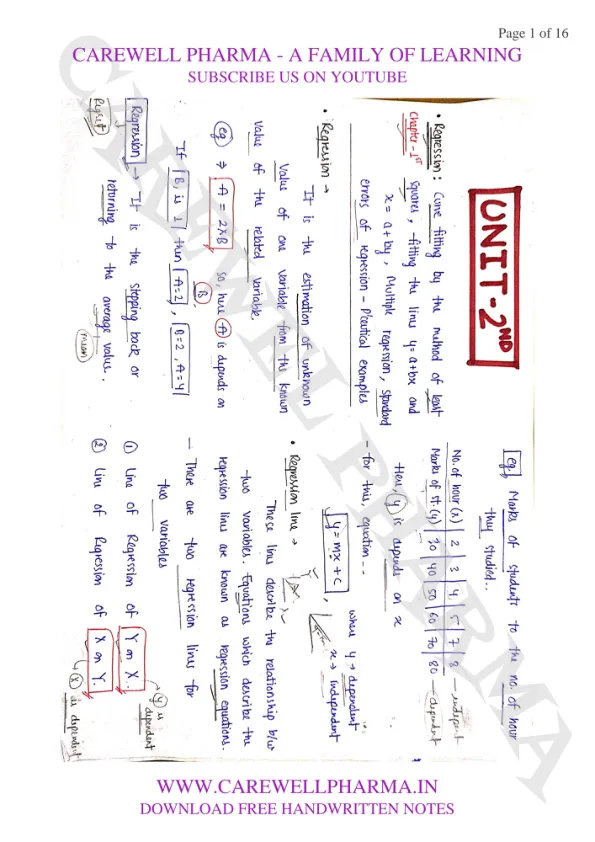 Page 1 of 16
CAREWELL PHARMA - A FAMILY OF LEARNING
SUBSCRIBE US ON YOUTUBE
CAREWELL PHARMA
UNIT-2ND
• Regression: Curve fitting by the method of least
Chapter-1st
squares, fitting the lines y=a+bx and
x = a+by, Multiple regression, standard
errors of regression - Pratical examples
• Regression →
It is the estimation of unknown
value of one variable from the known
value of the related variable.
eg ⇒ A = 2xB so, here A is depends on
B.
If B, is 1 then A=2, B=2, A=4
Regression → It is the stepping back or
returning to the average value.
mean
eg. Marks of students to the no. of hour
they studied..
No. of hour (x) 2 3 4 5 7 8 — independt
Marks of st. (y) 30 40 50 60 70 80 — dependent
Here, y is depends on x
- for this, equation - -
y = mx + c, where y → dependent
x → independent
• Regression line →
These lines describe the relationship b/w
two variables. Equations which describe the
regression lines are known as regression equations.
- There are two regression lines for
two variables
① Line of Regression of Y on X. → y is
dependent
② Line of Regression of X on Y.
x is dependent
WWW.CAREWELLPHARMA.IN
DOWNLOAD FREE HANDWRITTEN NOTES